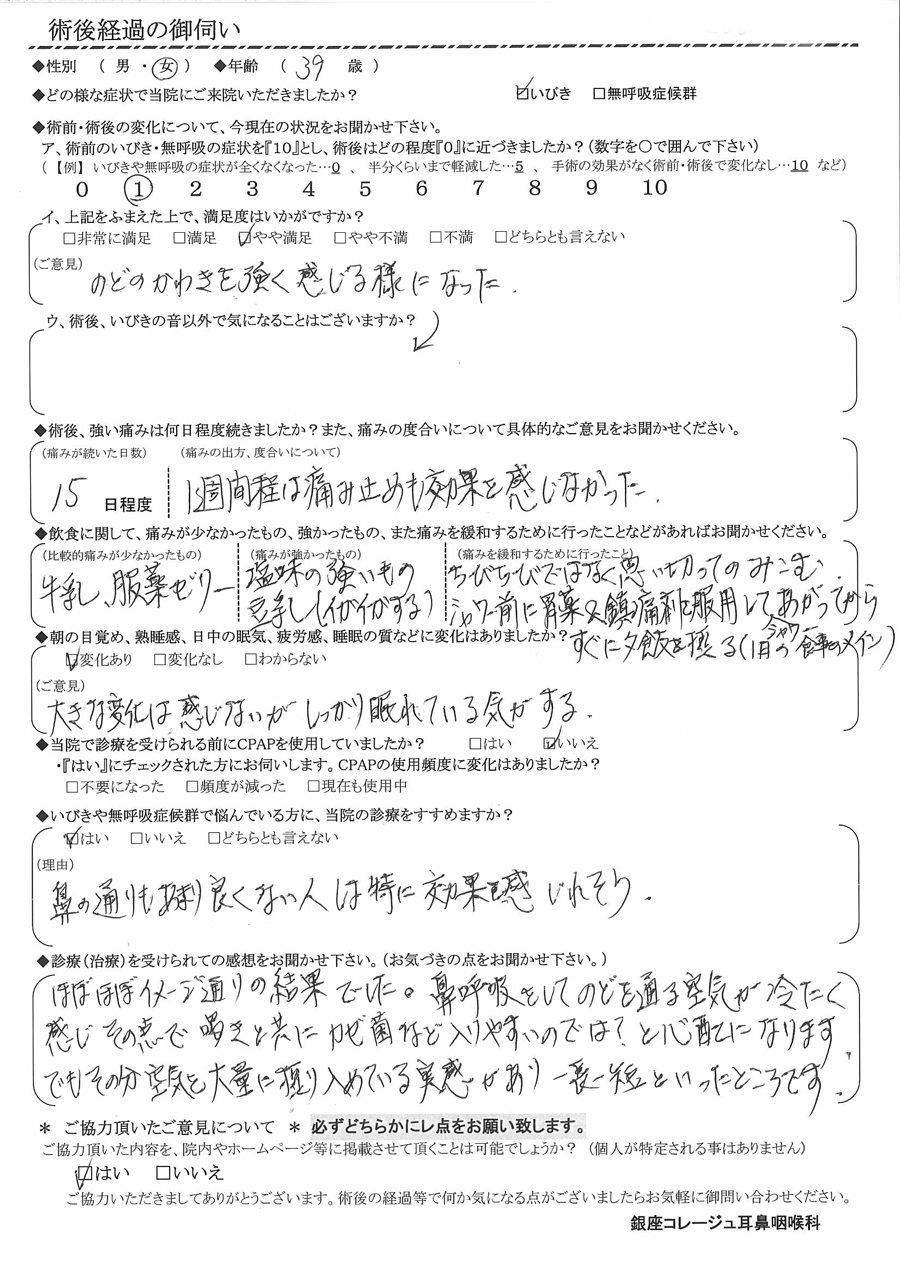 術後経過の御伺い
◆性別 （ 男 ・ 女 ） ◆年齢 （ 39 歳 ）
◆どの様な症状で当院にご来院いただきましたか？ ☑いびき □無呼吸症候群
◆術前・術後の変化について、今現在の状況をお聞かせ下さい。
ア、術前のいびき・無呼吸の症状を『10』とし、術後はどの程度『0』に近づきましたか？（数字を○で囲んで下さい）
（【例】 いびきや無呼吸の症状が全くなくなった…0 、 半分くらいまで軽減した…5 、 手術の効果がなく術前・術後で変化なし…10 など）
0 1 2 3 4 5 6 7 8 9 10
イ、上記をふまえた上で、満足度はいかがですか？
□非常に満足 □満足 ☑やや満足 □やや不満 □不満 □どちらとも言えない
（ご意見）
のどのかわきを強く感じる様になった．
ウ、術後、いびきの音以外で気になることはございますか？
◆術後、強い痛みは何日程度続きましたか？また、痛みの度合いについて具体的なご意見をお聞かせください。
（痛みが続いた日数） （痛みの出方、度合いについて）
15 日程度 1週間程は痛み止めも効果を感じなかった．
◆飲食に関して、痛みが少なかったもの、強かったもの、また痛みを緩和するために行ったことなどがあればお聞かせください。
（比較的痛みが少なかったもの） （痛みが強かったもの） （痛みを緩和するために行ったこと）
牛乳、服薬ゼリー 塩味の強いもの ちびちびではなく思い切ってのみこむ．
豆乳（イガイガする） シャワー前に胃薬&鎮痛剤を服用してあがってから
すぐに夕飯を摂る（1日の食事のメイン）
◆朝の目覚め、熟睡感、日中の眠気、疲労感、睡眠の質などに変化はありましたか？
☑変化あり □変化なし □わからない
（ご意見）
大きな変化は感じないが しっかり眠れている気がする．
◆当院で診療を受けられる前にCPAPを使用していましたか？ □はい ☑いいえ
・『はい』にチェックされた方にお伺いします。CPAPの使用頻度に変化はありましたか？
□不要になった □頻度が減った □現在も使用中
◆いびきや無呼吸症候群で悩んでいる方に、当院の診療をすすめますか？
☑はい □いいえ □どちらとも言えない
（理由）
鼻の通りもあまり良くない人は特に効果を感じれそう．
◆診療（治療）を受けられての感想をお聞かせ下さい。（お気づきの点をお聞かせ下さい。）
ほぼほぼイメージ通りの結果でした。鼻呼吸をしてのどを通る空気が冷たく
感じ その点で 渇きと共に カゼ菌など入りやすいのでは？と心配になります
でもその分空気を大量に取り入めている実感があり 一長一短といったところです．
＊ ご協力頂いたご意見について ＊ 必ずどちらかにレ点をお願い致します。
ご協力頂いた内容を、院内やホームページ等に掲載させて頂くことは可能でしょうか？ （個人が特定される事はありません）
☑はい □いいえ
ご協力いただきましてありがとうございます。術後の経過等で何か気になる点がございましたらお気軽に御問い合わせください。
銀座コレージュ耳鼻咽喉科